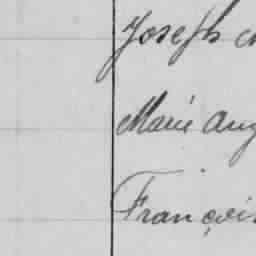 Joseph
Marie Aug
Françoi